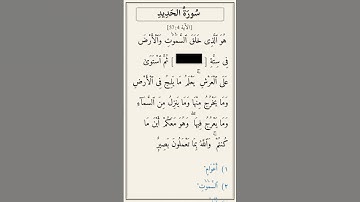 سُورَةُ الحَدِيدِ
[الآية 4:57]
هُوَ ٱلَّذِى خَلَقَ ٱلسَّمَٰوَٰتِ وَٱلْأَرْضَ
فِى سِتَّةِ [ ] ثُمَّ ٱسْتَوَىٰ
عَلَى ٱلْعَرْشِ ۚ يَعْلَمُ مَا يَلِجُ فِى ٱلْأَرْضِ
وَمَا يَخْرُجُ مِنْهَا وَمَا يَنزِلُ مِنَ ٱلسَّمَآءِ
وَمَا يَعْرُجُ فِيهَا ۖ وَهُوَ مَعَكُمْ أَيْنَ مَا
كُنتُمْ ۚ وَٱللَّهُ بِمَا تَعْمَلُونَ بَصِيرٌ
١) أَعْوَامٍ
٢) ٱلسَّمَٰوَٰتِ